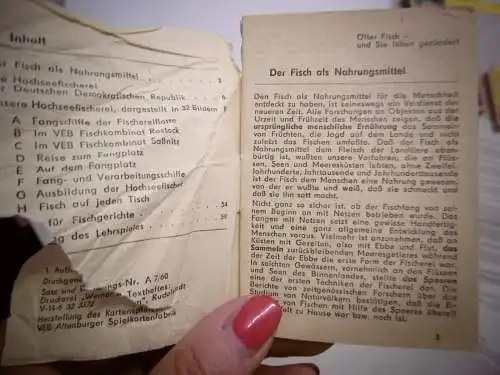 Inhalt
Der Fisch als Nahrungsmittel 3
Hochseefischerei
Deutschen Demokratischen Republik 6
unsere Hochseefischerei, dargestellt in 32 Bildern
A Fangschiffe der Fischereiflotte
B Im VEB Fischkombinat Rostock
C Im VEB Fischkombinat Saßnitz
D Reise zum Fangplatz
E Auf dem Fangplatz
F Fang- und Verarbeitungsschiffe
G Ausbildung der Hochseefischer
H Fisch auf jeden Tisch
für Fischgerichte 34
des Lehrspieles
1. Auflage
Nr. A 7/60
Satz und
Druckerei „Werner
V-14-6
Herstellung des Kartenspieles
VEB Altenburger Spielkartenfabrik
Öfter Fisch –
und Sie leben gesünder!
Der Fisch als Nahrungsmittel
Den Fisch als Nahrungsmittel für die Menschheit
entdeckt zu haben, ist keineswegs ein Verdienst der
neueren Zeit. Alle Forschungen an Objekten aus der
Urzeit und Frühzeit des Menschen zeigen, daß die
ursprüngliche menschliche Ernährung das Sammeln
von Früchten, die Jagd auf dem Lande und nicht
zuletzt das Fischen umfaßte. Daß der Fisch als
Nahrungsmittel dem Fleisch der Landtiere eben-
bürtig ist, wußten unsere Vorfahren, die an Flüs-
sen, Seen und Meeresküsten lebten, ohne Zweifel.
Jahrhunderte, Jahrtausende und Jahrhunderttausende
ist der Fisch dem Menschen eine Nahrung gewesen,
von der er wußte und weiß, daß sie schmeckt und
daß sie ihn satt macht.
Nicht ganz so sicher ist, ob der Fischfang von sei-
nem Beginn an mit Netzen betrieben wurde. Das
Fangen mit Netzen setzt eine gewisse Handfertig-
keit und eine ganz allgemeine Entwicklung des
Menschen voraus. Vielmehr ist anzunehmen, daß an
Küsten mit Gezeiten, also mit Ebbe und Flut, das
Sammeln zurückbleibenden Meeresgetieres während
der Zeit der Ebbe die erste Form der Fischerei war.
In seichten Gewässern, vornehmlich an den Flüssen
und Seen des Binnenlandes, stellte das Speeren
eine der ersten Techniken der Fischerei dar. Die
Berichte von zeitgenössischen Forschern über das
Studium von Naturvölkern bestätigen, daß die Er-
von Fischen mit Hilfe des Speeres
zu Hause war bzw. noch ist.
3